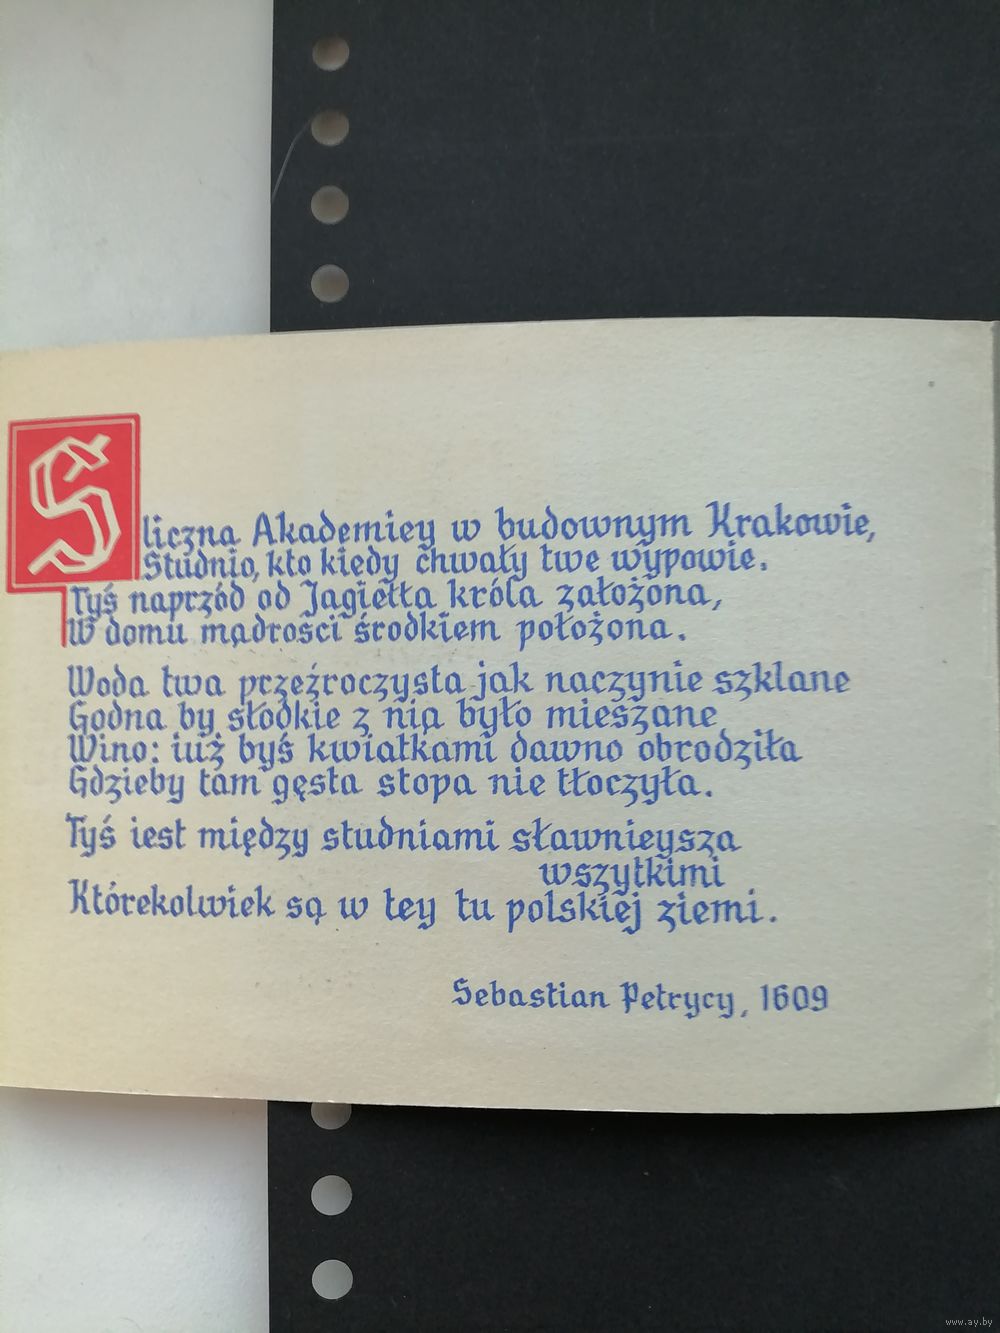 Sliczna Akademiey w budownym Krakowie,
Studnio, kto kiedy chwały twe wypowie.
Tyś naprzód od Jagiełła króla założona,
W domu mądrości środkiem położona.
Woda twa przeźroczysta jak naczynie szklane
Godna by słodkie z nią było mieszane
Wino: iuż byś kwiatkami dawno obrodziła
Gdzieby tam gęsta stopa nie tłoczyła.
Tyś iest między studniami sławnieysza
wszytkimi
Którekolwiek są w tey tu polskiej ziemi.
Sebastian Petrycy, 1609
www.ay.by